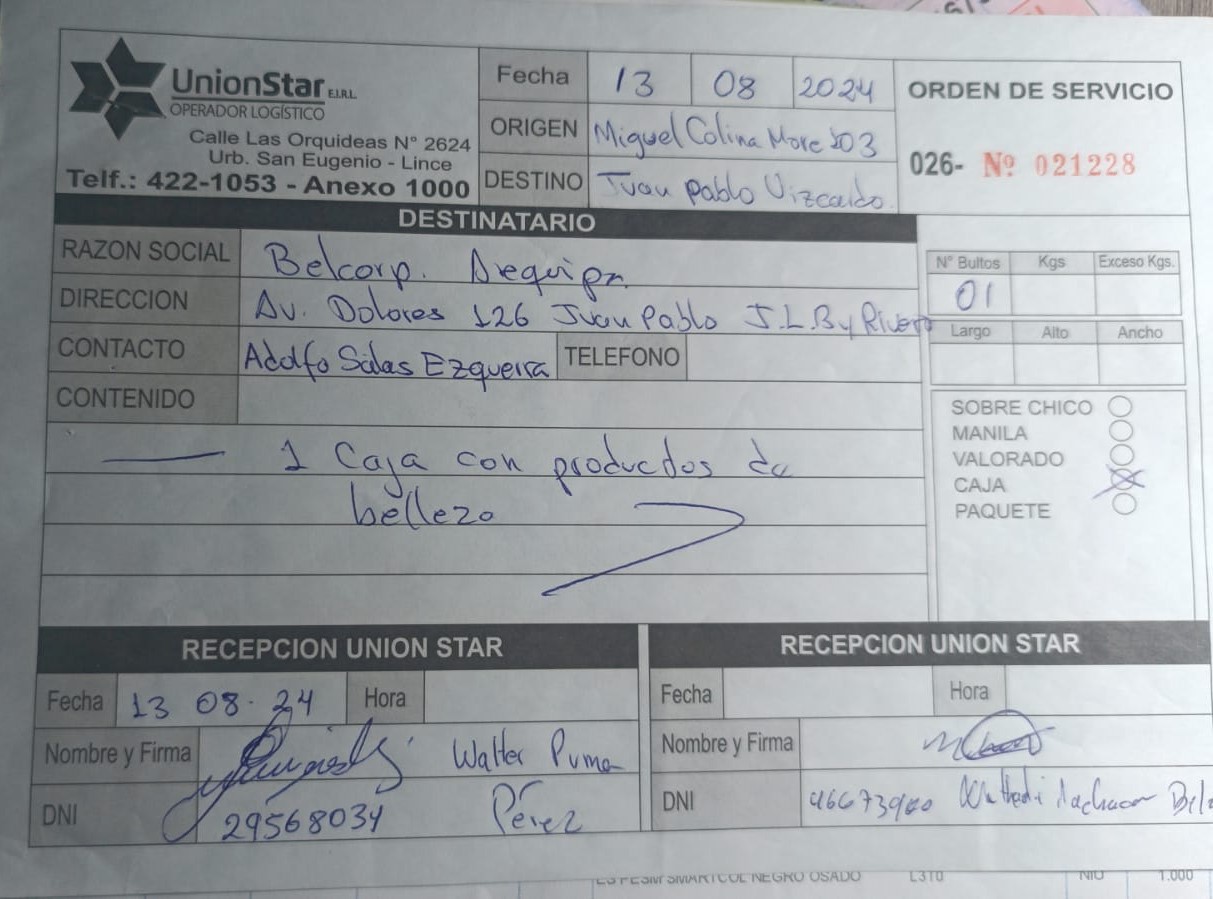 UnionStar E.I.R.L.
OPERADOR LOGÍSTICO
Calle Las Orquideas N° 2624
Urb. San Eugenio - Lince
Telf.: 422-1053 - Anexo 1000
Fecha 13 08 2024
ORIGEN Miguel Colina More 203
DESTINO Juan Pablo Vizcardo
ORDEN DE SERVICIO
026- Nº 021228
DESTINATARIO
RAZON SOCIAL Belcorp. Arequipa
DIRECCION Av. Dolores 126 Juan Pablo J.L.B y Rivero
CONTACTO Adolfo Salas Ezquerra TELEFONO
CONTENIDO
1 Caja con productos de
belleza
N° Bultos Kgs Exceso Kgs.
01
Largo Alto Ancho
SOBRE CHICO
MANILA
VALORADO
CAJA
PAQUETE
RECEPCION UNION STAR
Fecha 13 08-24 Hora
Nombre y Firma Walter Puma
DNI 29568034 Pérez
RECEPCION UNION STAR
Fecha Hora
Nombre y Firma
DNI
NEGRO OSADO L310 NIU 1.000